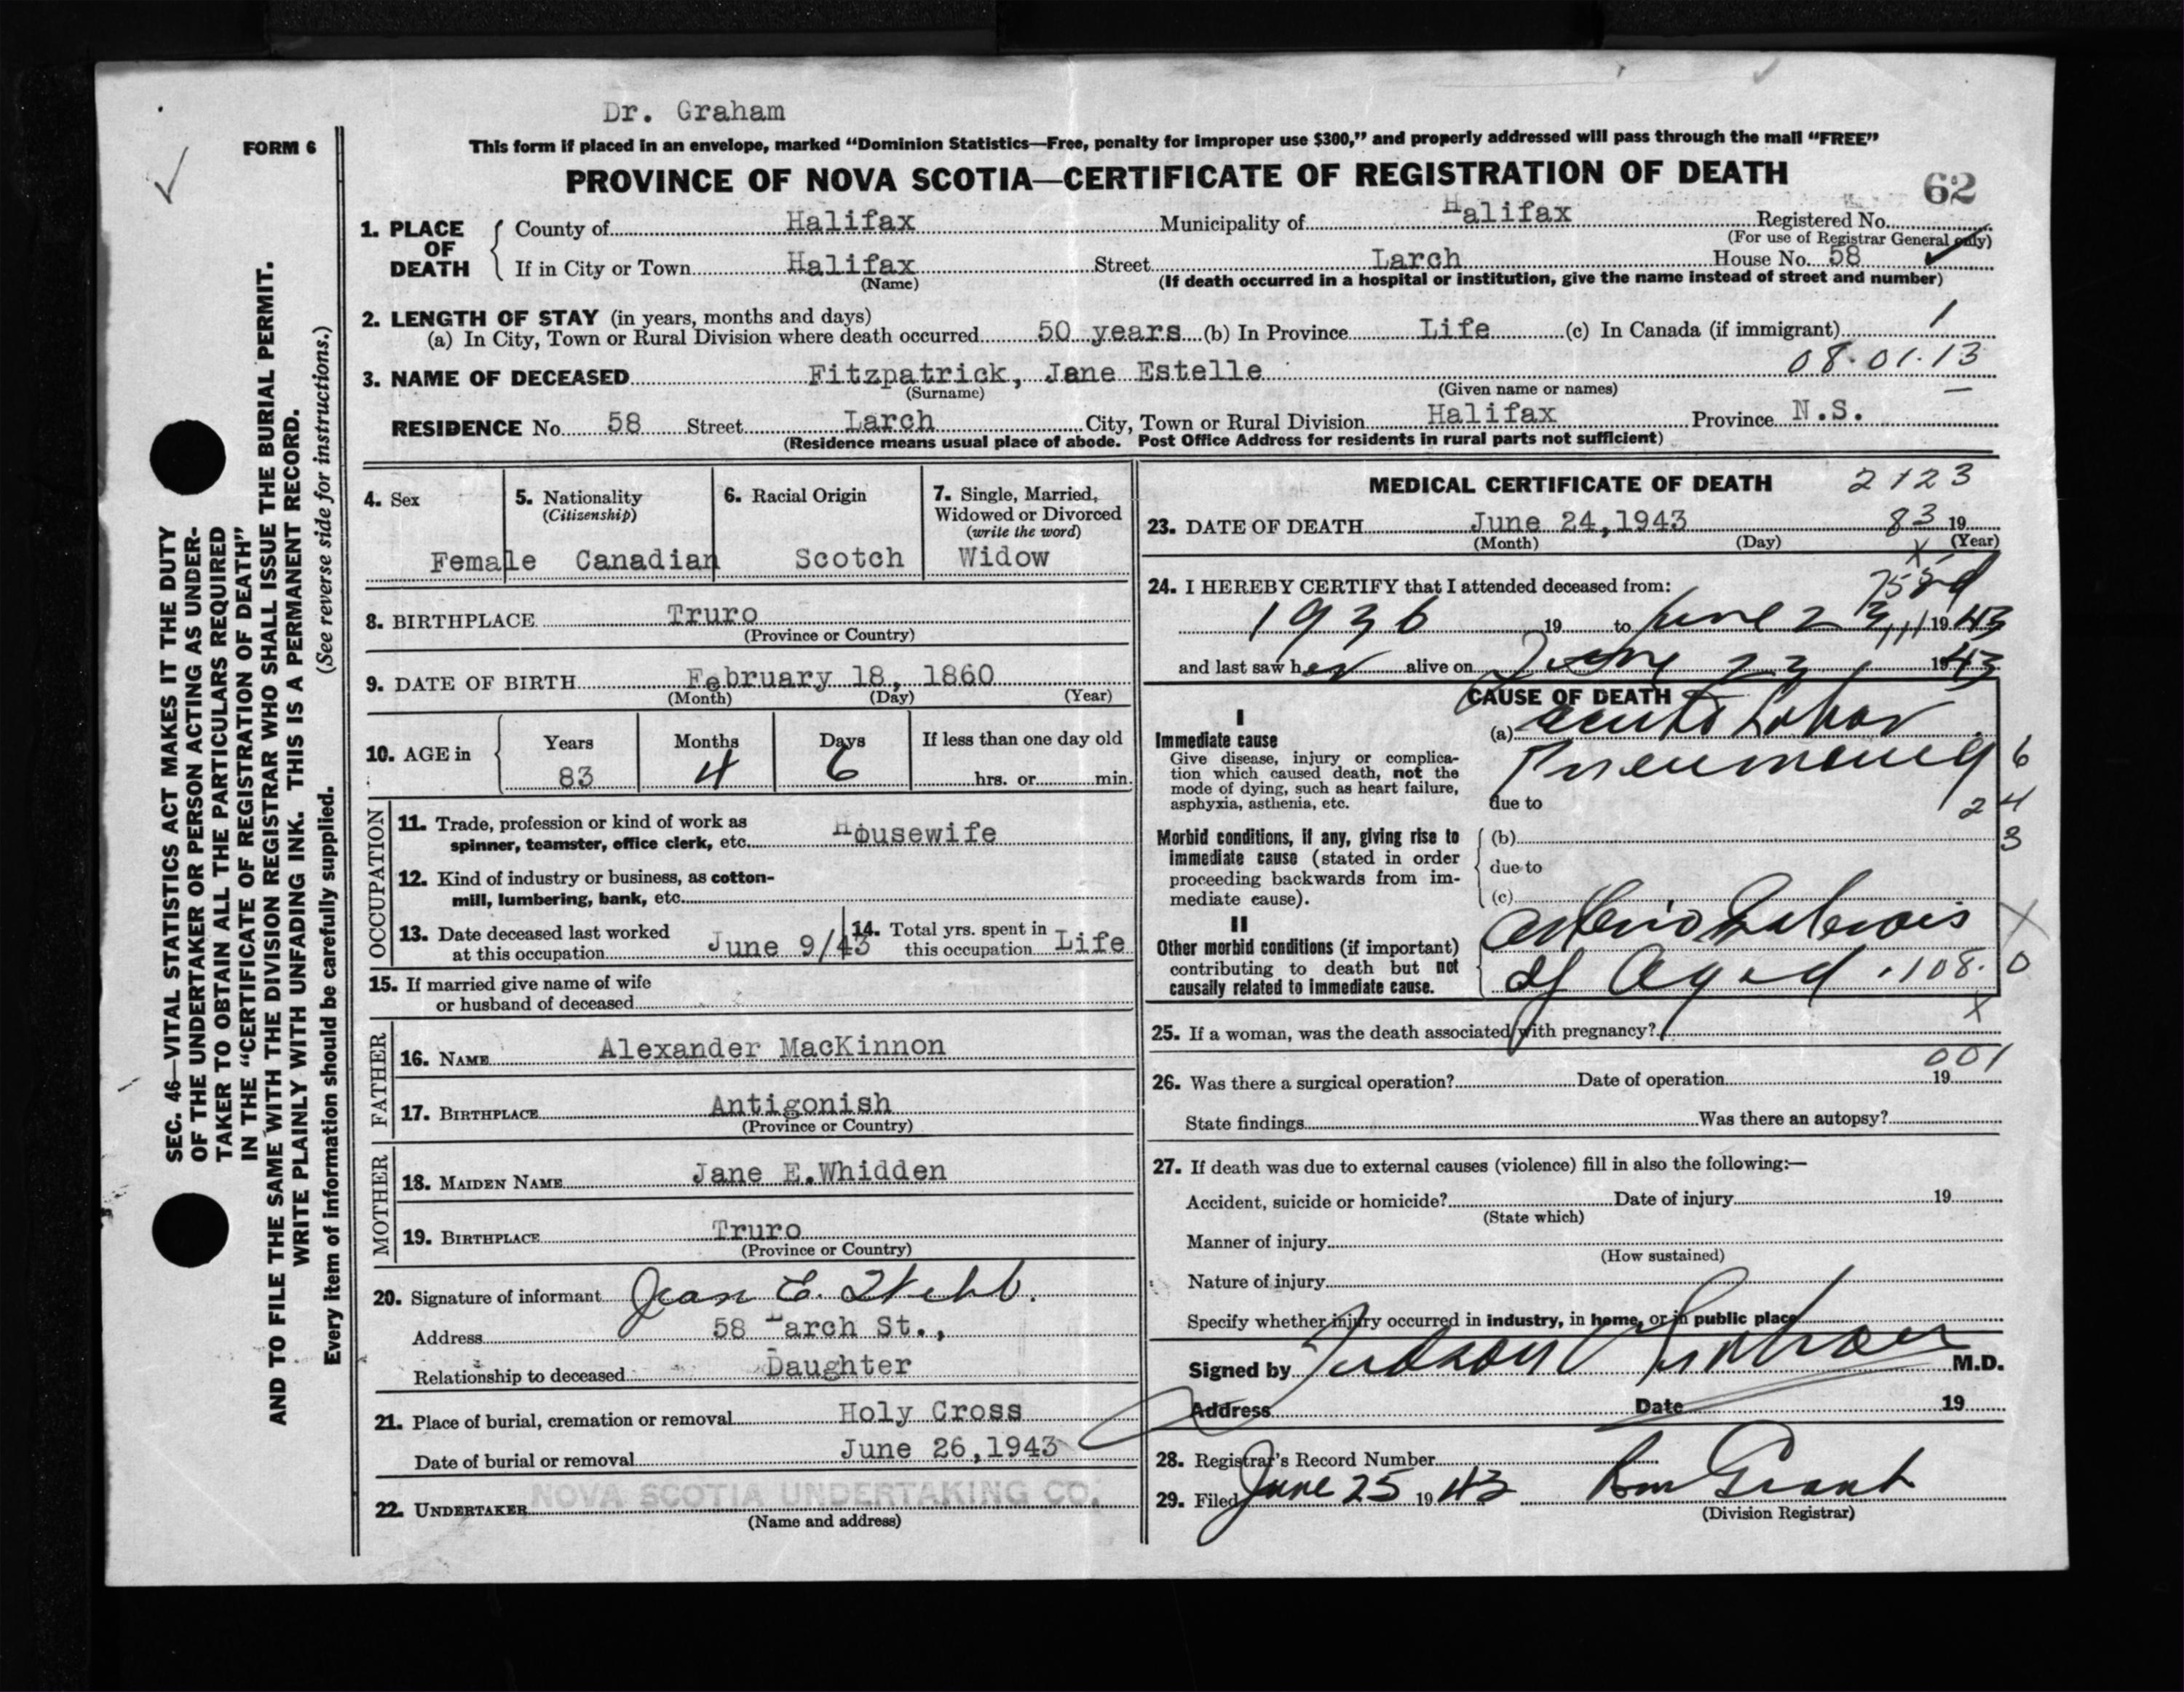 Dr. Graham
FORM 6
This form if placed in an envelope, marked "Dominion Statistics—Free, penalty for improper use $300," and properly addressed will pass through the mail "FREE"
PROVINCE OF NOVA SCOTIA—CERTIFICATE OF REGISTRATION OF DEATH
62
1. PLACE OF DEATH
County of Halifax Municipality of Halifax Registered No.
(For use of Registrar General only)
If in City or Town Halifax Street Larch House No. 58
(Name) (If death occurred in a hospital or institution, give the name instead of street and number)
2. LENGTH OF STAY (in years, months and days)
(a) In City, Town or Rural Division where death occurred 50 years (b) In Province Life (c) In Canada (if immigrant) 1
08.01.13
3. NAME OF DECEASED Fitzpatrick, Jane Estelle
(Surname) (Given name or names)
RESIDENCE No. 58 Street Larch City, Town or Rural Division Halifax Province N.S.
(Residence means usual place of abode. Post Office Address for residents in rural parts not sufficient)
4. Sex
Female
5. Nationality
(Citizenship)
Canadian
6. Racial Origin
Scotch
7. Single, Married,
Widowed or Divorced
(write the word)
Widow
8. BIRTHPLACE Truro
(Province or Country)
9. DATE OF BIRTH February 18, 1860
(Month) (Day) (Year)
10. AGE in
Years Months Days If less than one day old
83 4 6 hrs. or min.
OCCUPATION
11. Trade, profession or kind of work as
spinner, teamster, office clerk, etc. Housewife
12. Kind of industry or business, as cotton-
mill, lumbering, bank, etc.
13. Date deceased last worked
at this occupation June 9/43
14. Total yrs. spent in
this occupation Life
15. If married give name of wife
or husband of deceased
FATHER
16. NAME Alexander MacKinnon
17. BIRTHPLACE Antigonish
(Province or Country)
MOTHER
18. MAIDEN NAME Jane E.Whidden
19. BIRTHPLACE Truro
(Province or Country)
20. Signature of informant Jean E. Webb.
Address 58 Larch St.,
Relationship to deceased Daughter
21. Place of burial, cremation or removal Holy Cross
Date of burial or removal June 26,1943
22. UNDERTAKER NOVA SCOTIA UNDERTAKING CO.
(Name and address)
MEDICAL CERTIFICATE OF DEATH
2123
23. DATE OF DEATH June 24,1943 83 19
(Month) (Day) (Year)
X
24. I HEREBY CERTIFY that I attended deceased from:
1936 19 to June 23 1943
and last saw her alive on June 23 1943
CAUSE OF DEATH
I
Immediate cause
Give disease, injury or complica-
tion which caused death, not the
mode of dying, such as heart failure,
asphyxia, asthenia, etc.
(a) acute Lobar
Pneumonia
due to
6
24
3
Morbid conditions, if any, giving rise to
immediate cause (stated in order
proceeding backwards from im-
mediate cause).
(b)
due to
(c)
II
Other morbid conditions (if important)
contributing to death but not
causally related to immediate cause.
Arterio Sclerosis
of Aged
108. 0
X
X
25. If a woman, was the death associated with pregnancy?
001
26. Was there a surgical operation? Date of operation 19
State findings Was there an autopsy?
27. If death was due to external causes (violence) fill in also the following:—
Accident, suicide or homicide? Date of injury 19
(State which)
Manner of injury
(How sustained)
Nature of injury
Specify whether injury occurred in industry, in home, or in public place
Signed by Judson V Graham M.D.
Address Date 19
28. Registrar's Record Number
29. Filed June 25 1943 Grant
(Division Registrar)
SEC. 46—VITAL STATISTICS ACT MAKES IT THE DUTY
OF THE UNDERTAKER OR PERSON ACTING AS UNDER-
TAKER TO OBTAIN ALL THE PARTICULARS REQUIRED
IN THE "CERTIFICATE OF REGISTRATION OF DEATH"
AND TO FILE THE SAME WITH THE DIVISION REGISTRAR WHO SHALL ISSUE THE BURIAL PERMIT.
WRITE PLAINLY WITH UNFADING INK. THIS IS A PERMANENT RECORD.
Every item of information should be carefully supplied. (See reverse side for instructions.)